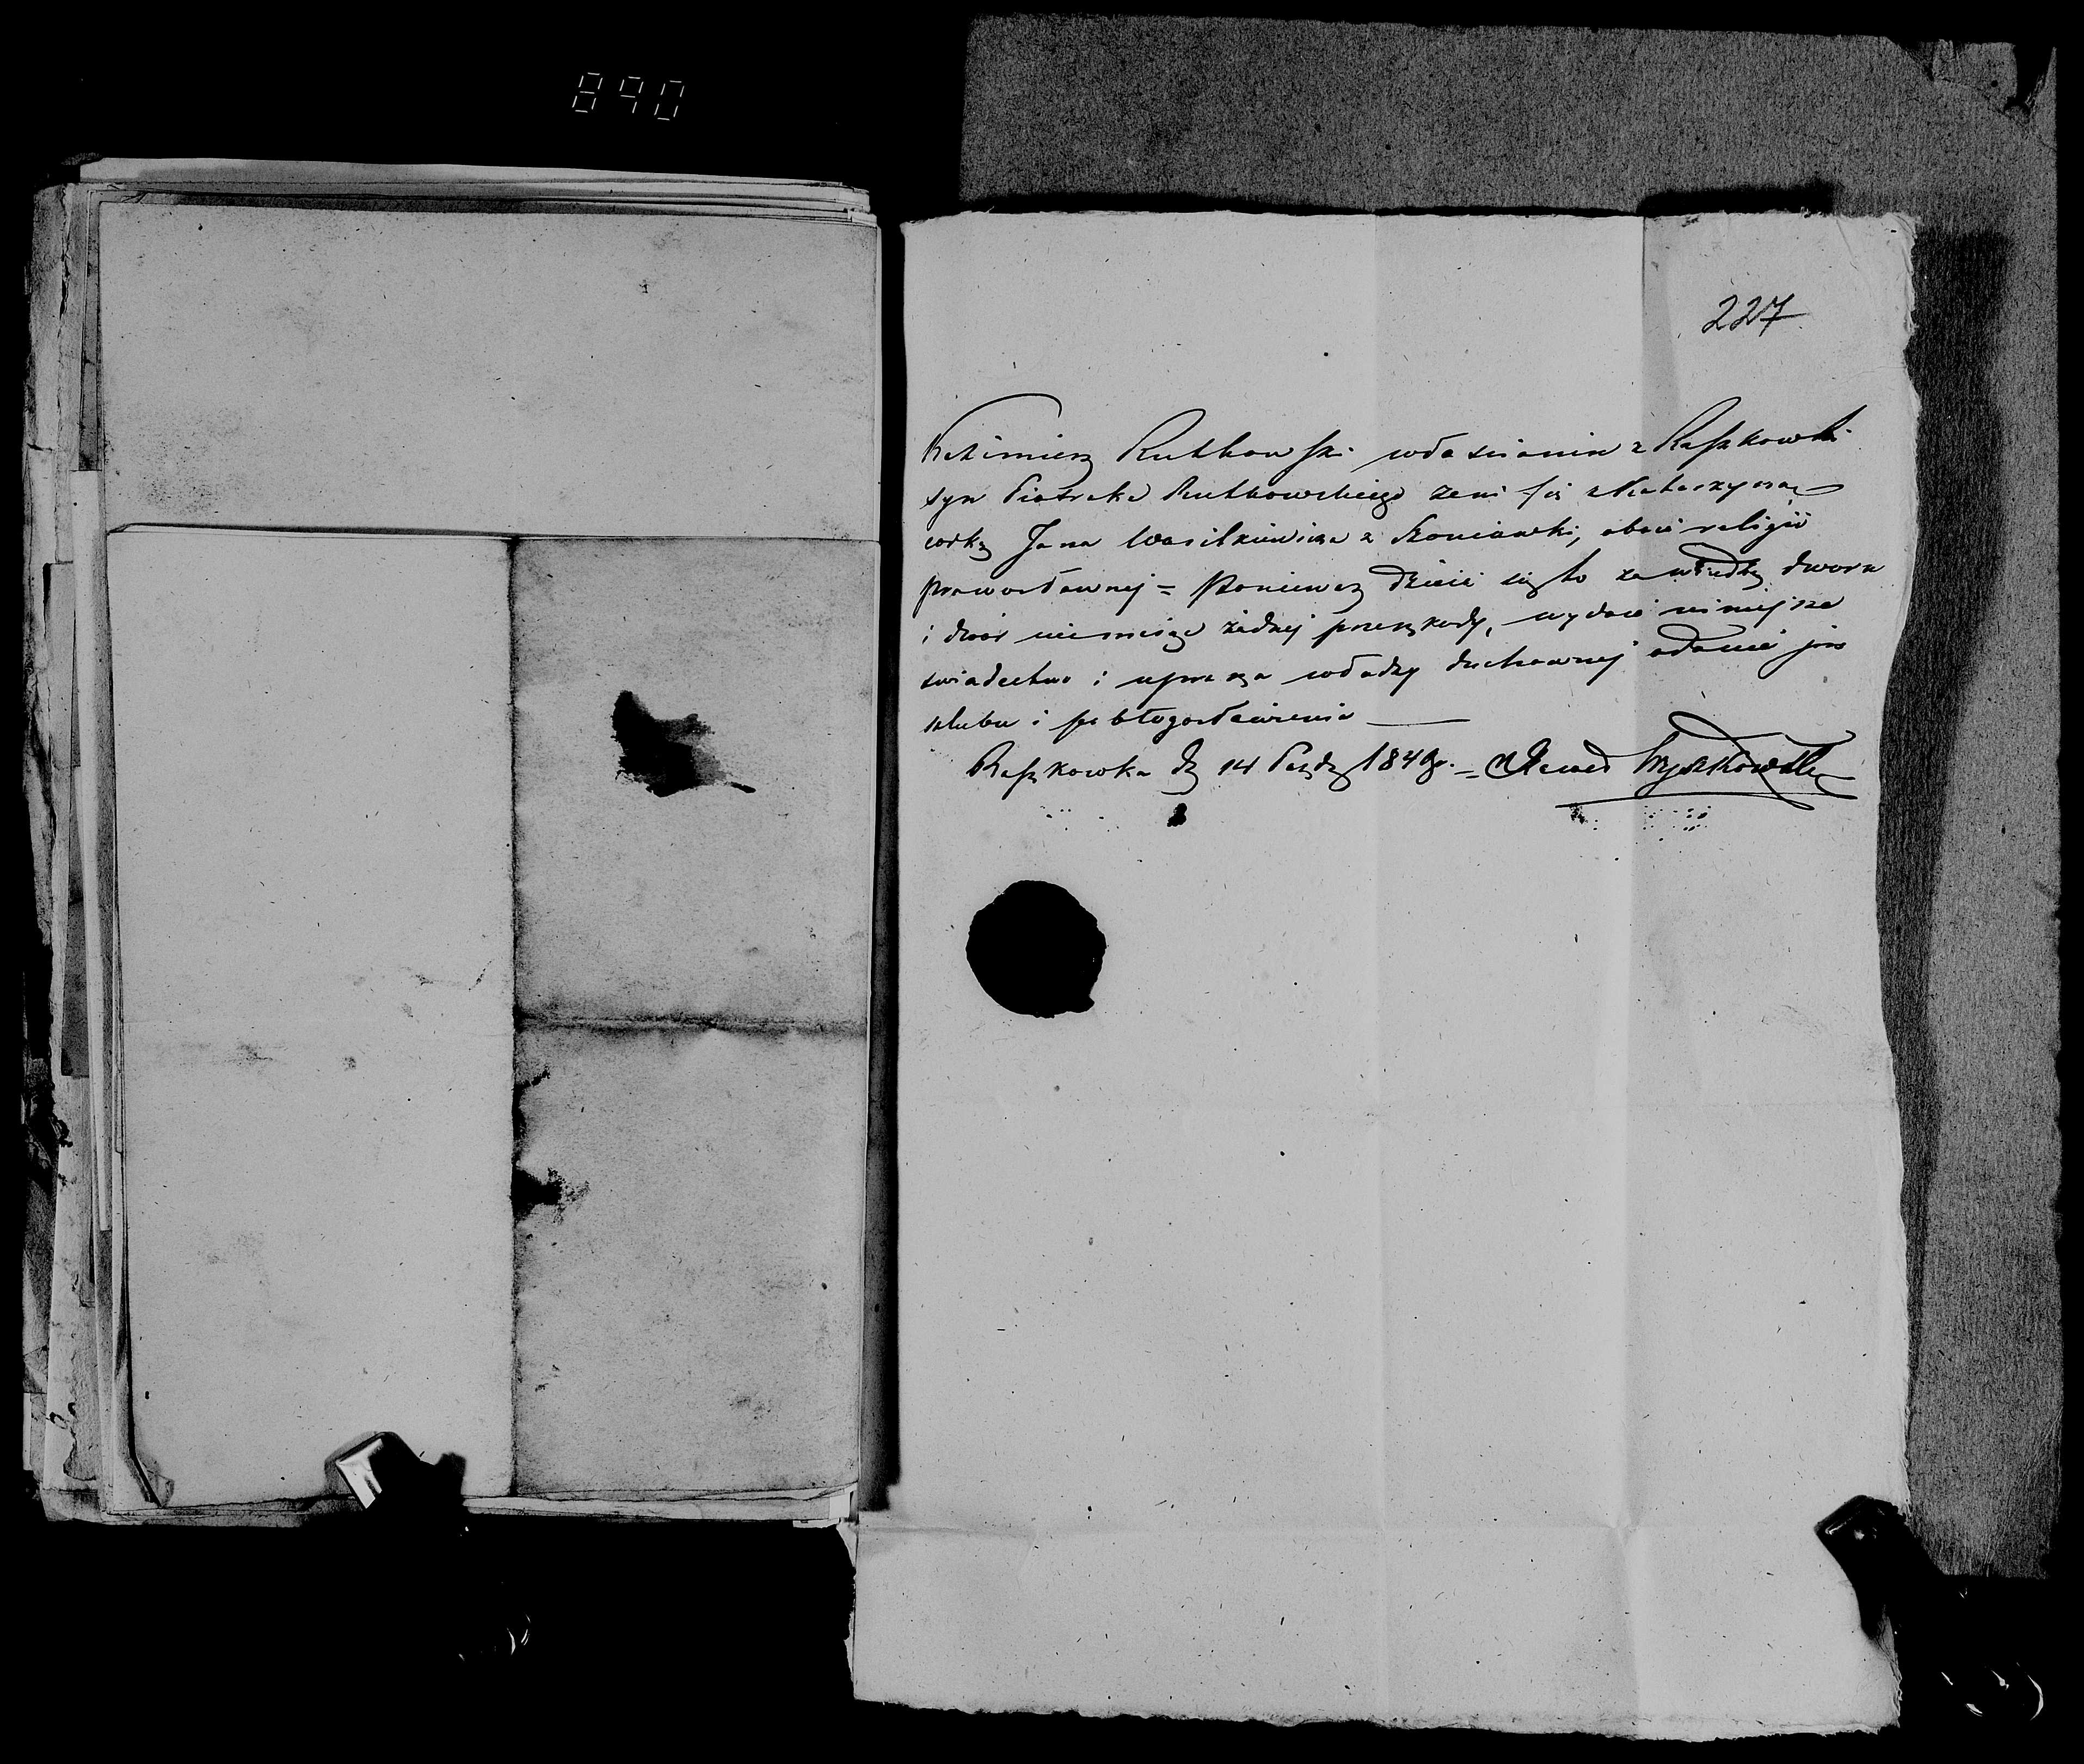 890
227
Kazimierz Rutkowski włascianin z Raszkowki
syn Piotrake Rutkowskiego zeni się z Katarzyną
corką Jana Wasilkiewicza z Stoniawki, oboie religii
prawosławnej = Poniewaz dzieie się to za wiedzą dworu
i dwór niemaiąc żadnej przeszkody, wydaie niniejsze
swiadectwo i uprasza władzy duchownej o danie jim
slubu i pobłogosławienia
Raszkowka d 14 Pazdz 1849 r. =